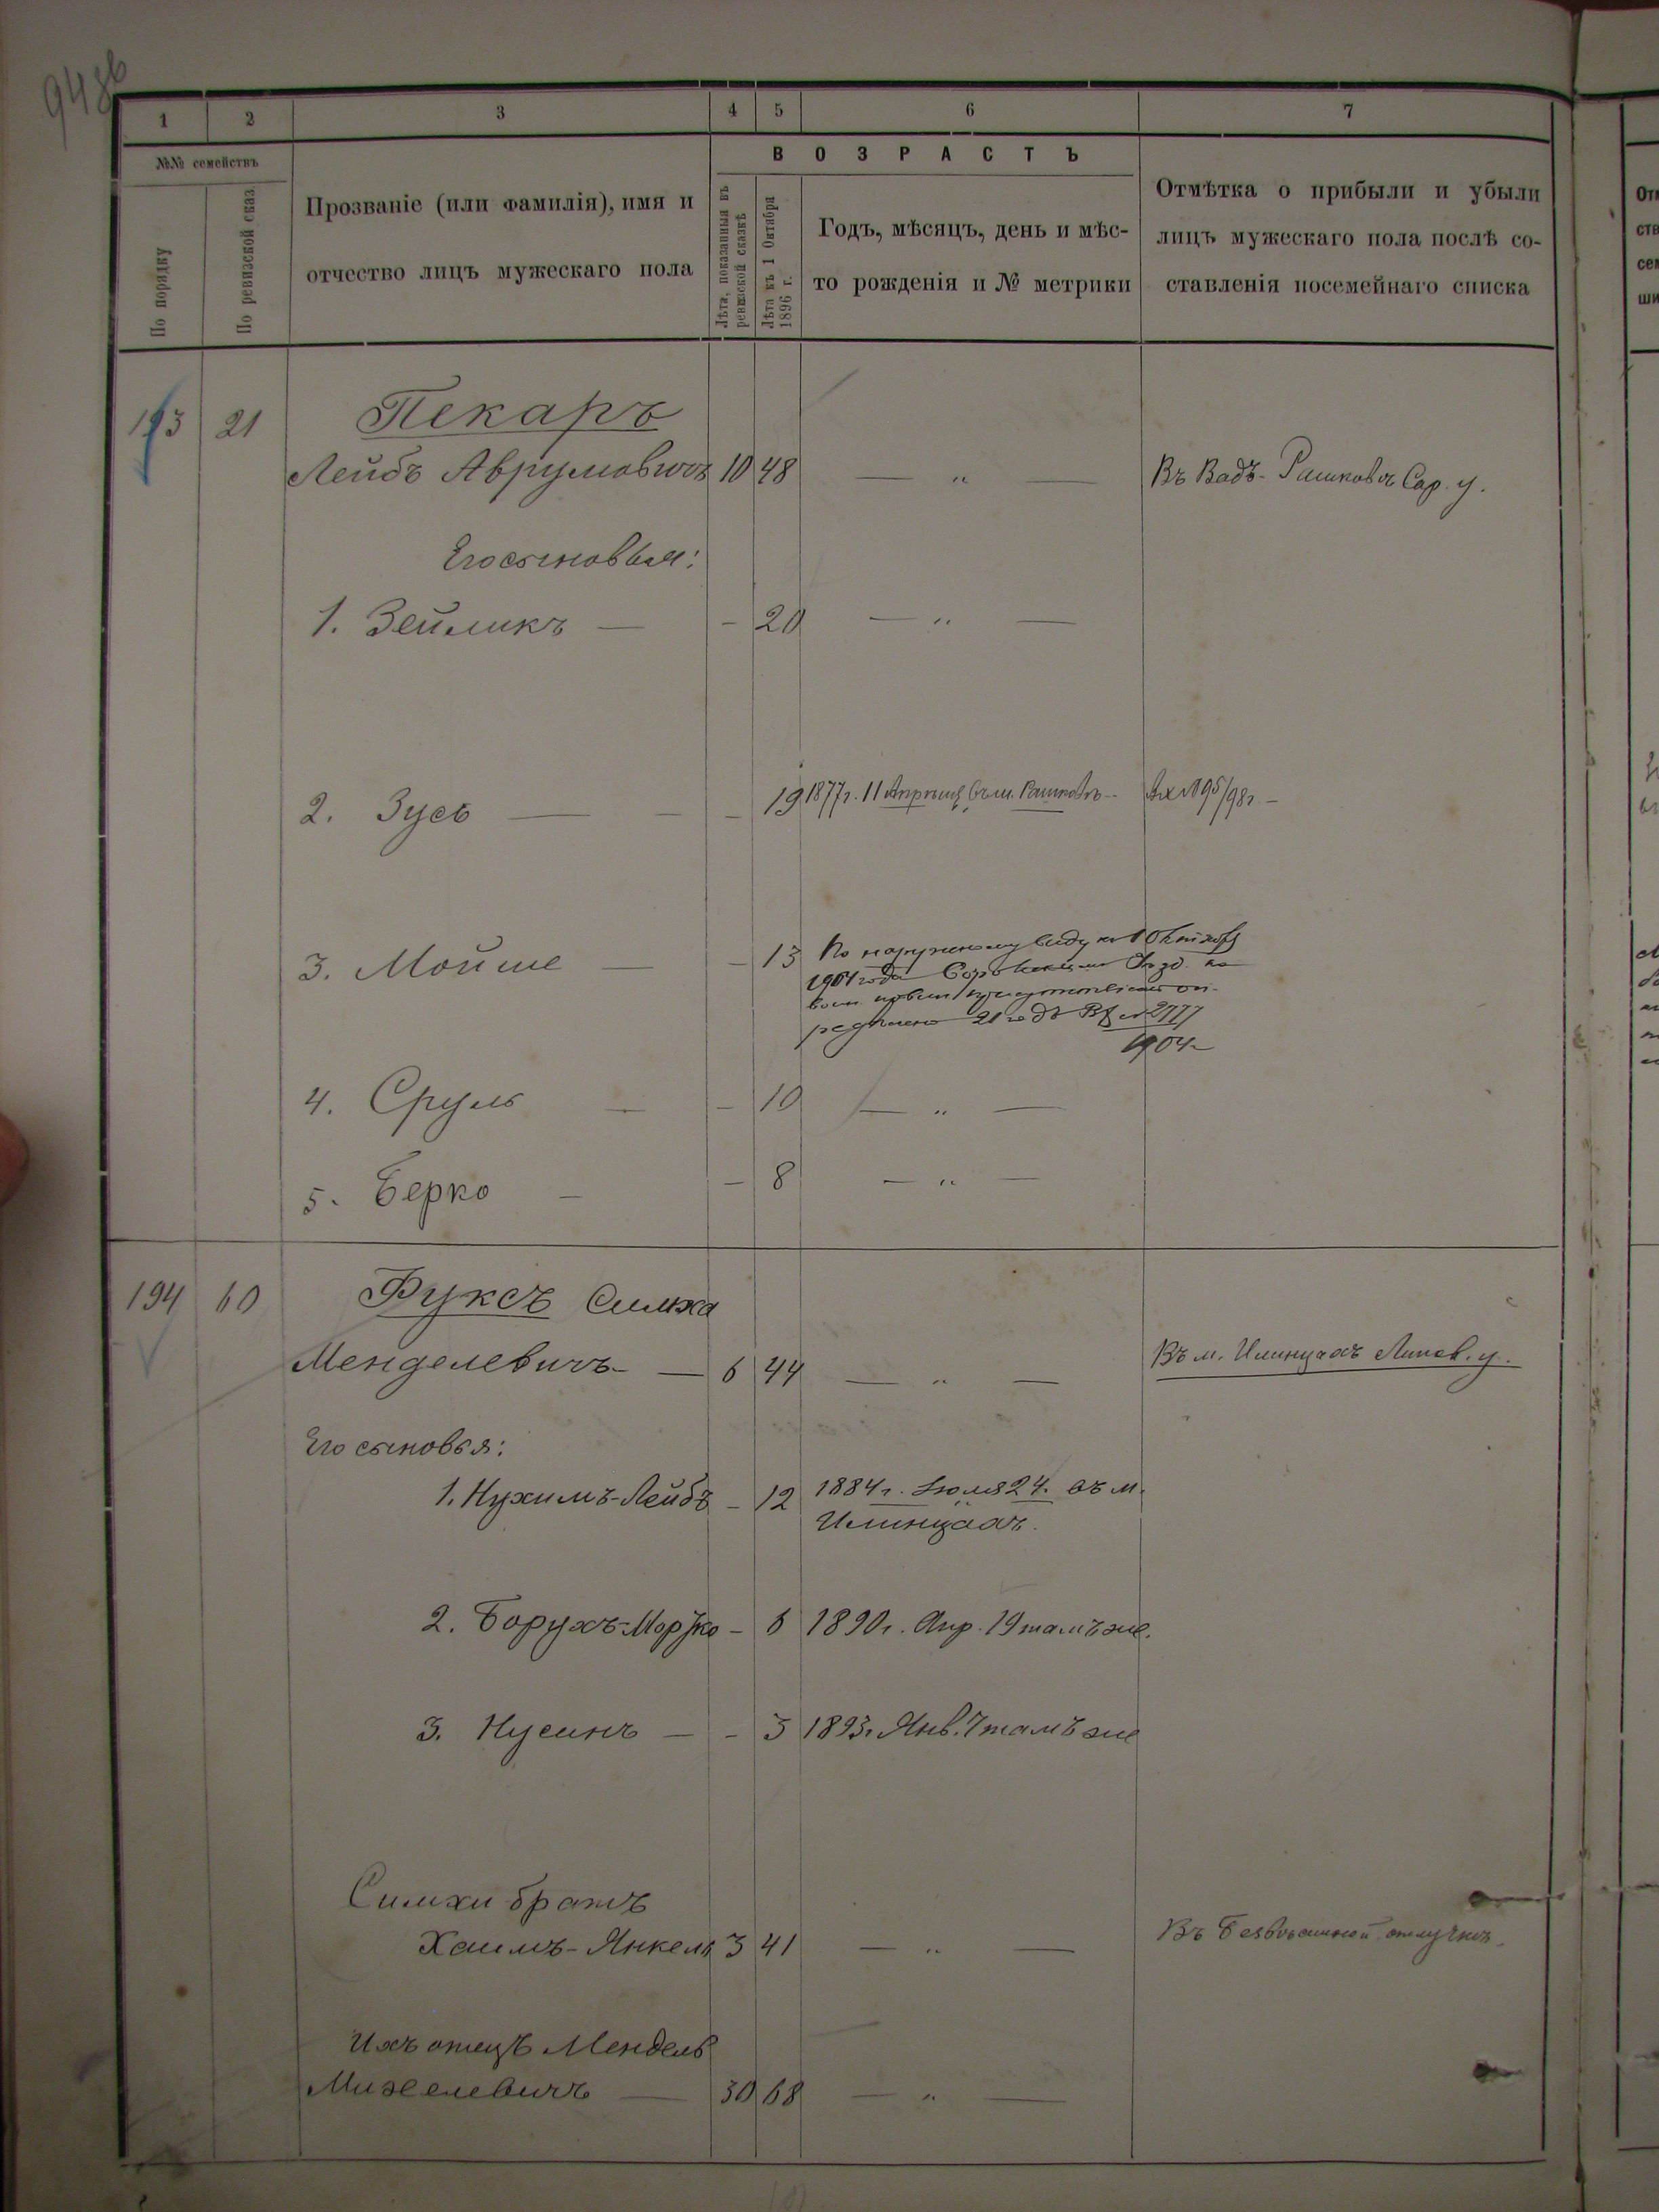 948б
1 2 3 4 5 6 7
№№ семействъ
По порядку
По ревизской сказ
Прозваніе (или фамилія), имя и
отчество лицъ мужескаго пола
ВОЗРАСТЪ
Лѣта, показанныя въ
ревизской сказкѣ
Лѣта къ 1 Октября
1896 г.
Годъ, мѣсяцъ, день и мѣс-
то рожденія и № метрики
Отмѣтка о прибыли и убыли
лицъ мужескаго пола послѣ со-
ставленія посемейнаго списка
193 21 Пекаръ
Лейбъ Аврумовичъ 10 48 — „ — Въ Вадъ-Рашковѣ Сор. у.
Его сыновья:
1. Зейликъ — - 20 — „ —
2. Зусь — - 19 1877 г. 11 Апрѣля въ м. Рашковѣ - 95/98 г. -
3. Мойше — - 13 По наружному виду къ 1 Октября
1904 года
21 годъ 2777
1904
4. Сруль — - 10 — „ —
5. Берко — - 8 — „ —
194 60 Фуксъ Симха
Менделевичъ — 6 44 — „ — Въ м. Илинцахъ Липов. у.
Его сыновья:
1. Нухимъ-Лейбъ - 12 1884 г. Іюля 24. въ м.
Илинцахъ.
2. Борухъ-Мордко - 6 1890 г. Апр. 19 тамъ же.
3. Нусинъ — - 3 1893 г. Янв. 7 тамъ же
Симхи братъ
Хаимъ-Янкель 3 41 — „ — Въ безвѣстной отлучкѣ.
Ихъ отецъ Мендель
Михелевичъ — 30 68 — „ —